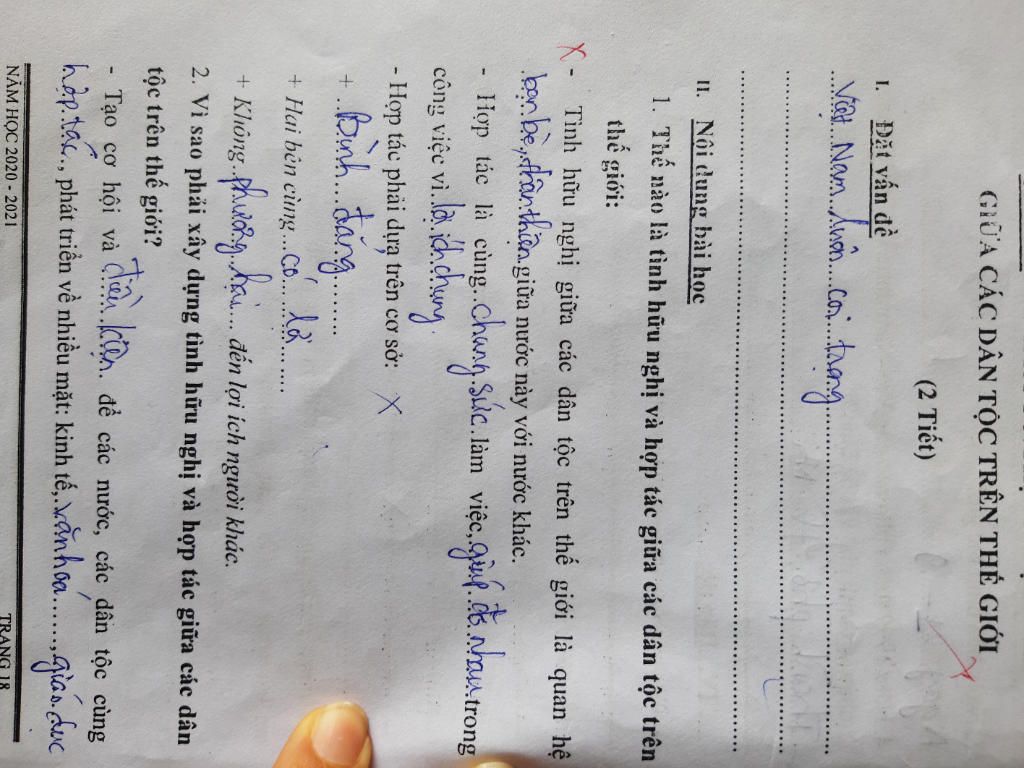 GIỮA CÁC DÂN TỘC TRÊN THẾ GIỚI
(2 Tiết)
I. Đặt vấn đề
Việt Nam luôn coi trọng
II. Nội dung bài học
1. Thế nào là tình hữu nghị và hợp tác giữa các dân tộc trên
thế giới:
- Tình hữu nghị giữa các dân tộc trên thế giới là quan hệ
bạn bè, thân thiện giữa nước này với nước khác.
- Hợp tác là cùng chung sức làm việc, giúp đỡ nhau trong
công việc vì lợi ích chung
- Hợp tác phải dựa trên cơ sở:
+ Bình đẳng
+ Hai bên cùng có lợi
+ Không phương hại đến lợi ích người khác.
2. Vì sao phải xây dựng tình hữu nghị và hợp tác giữa các dân
tộc trên thế giới?
- Tạo cơ hội và điều kiện để các nước, các dân tộc cùng
hợp tác, phát triển về nhiều mặt: kinh tế, văn hoá, giáo dục
NĂM HỌC 2020 - 2021 TRANG 18